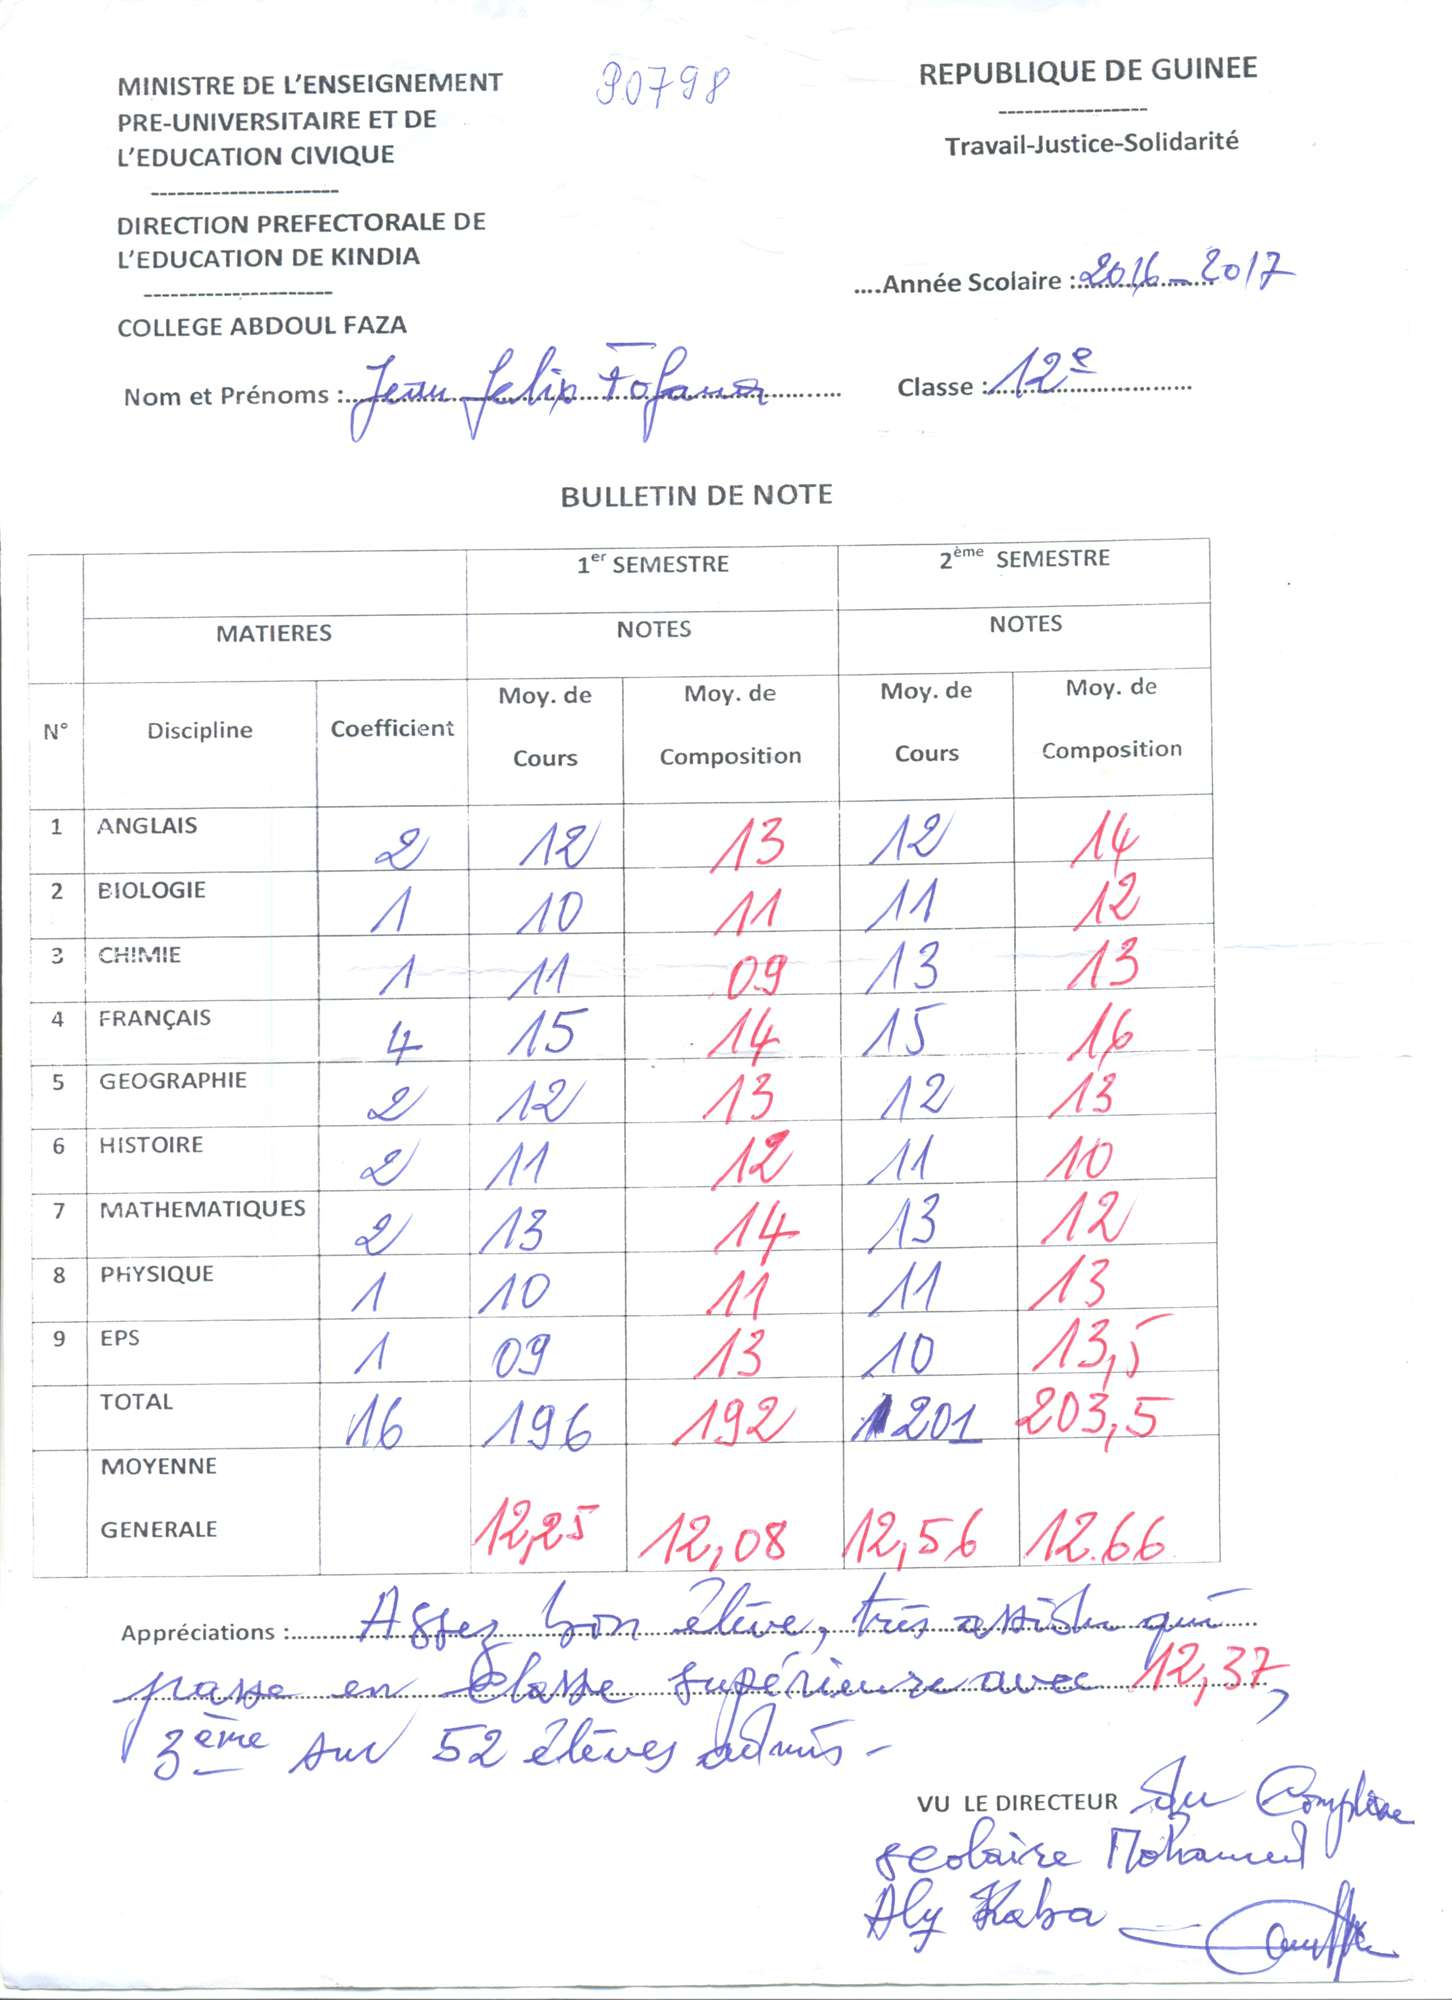 MINISTRE DE L'ENSEIGNEMENT
PRE-UNIVERSITAIRE ET DE
L'EDUCATION CIVIQUE
---------------------
DIRECTION PREFECTORALE DE
L'EDUCATION DE KINDIA
---------------------
COLLEGE ABDOUL FAZA
90798
REPUBLIQUE DE GUINEE
-----------------
Travail-Justice-Solidarité
....Année Scolaire : 2016-2017
Nom et Prénoms : Jean Felix Fofana
Classe : 12e
BULLETIN DE NOTE
1er SEMESTRE 2ème SEMESTRE
MATIERES NOTES NOTES
N° Discipline Coefficient Moy. de Cours Moy. de Composition Moy. de Cours Moy. de Composition
1 ANGLAIS 2 12 13 12 14
2 BIOLOGIE 1 10 11 11 12
3 CHIMIE 1 11 09 13 13
4 FRANÇAIS 4 15 14 15 16
5 GEOGRAPHIE 2 12 13 12 13
6 HISTOIRE 2 11 12 11 10
7 MATHEMATIQUES 2 13 14 13 12
8 PHYSIQUE 1 10 11 11 13
9 EPS 1 09 13 10 13,5
TOTAL 16 196 192 201 203,5
MOYENNE
GENERALE 12,25 12,08 12,56 12.66
Appréciations : Assez bon élève, très assidu qui
passe en classe supérieure avec 12,37,
3ème sur 52 élèves admis -
VU LE DIRECTEUR du Complexe
scolaire Mohamed
Aly Kaba